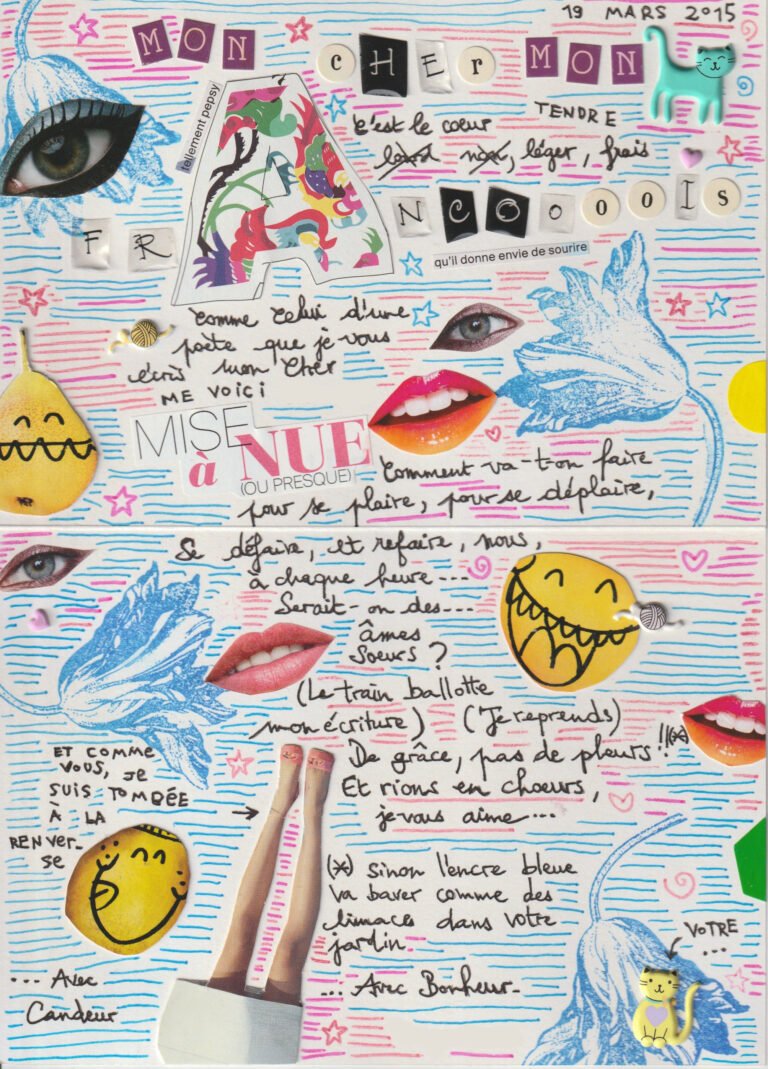 19 MARS 2015
MON CHEr MON
tellement pepsy
c'est le cœur TENDRE
lourd noir, léger, frais
FRANCOooOIS
qu'il donne envie de sourire
comme celui d'une
poète que je vous
écris mon cher
ME VOICI
MISE
à NUE
(OU PRESQUE)
Comment va-t-on faire
pour se plaire, pour se déplaire,
Se défaire, et refaire, nous,
à chaque heure...
Serait-on des...
âmes
sœurs ?
(Le train ballotte
mon écriture) (Je reprends)
De grâce, pas de pleurs !!(*)
Et rions en chœurs,
je vous aime...
ET COMME
VOUS, JE
SUIS TOMBÉE
À LA
RENVER-
SE
(*) sinon l'encre bleue
va baver comme des
limaces dans votre
jardin.
VOTRE
...
... Avec
Candeur
... Avec Bonheur-